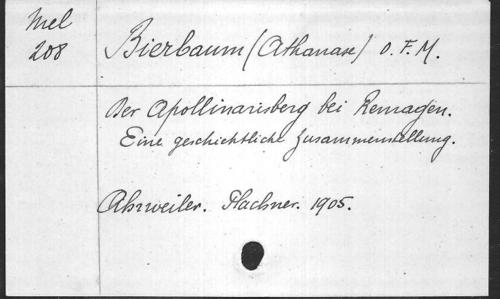 Mel
208
Bierbaum (Athanase) O. F. M.
Der Apollinarisberg bei Remagen.
Eine geschichtliche Zusammenstellung.
Ahrweiler. Plachner. 1905.